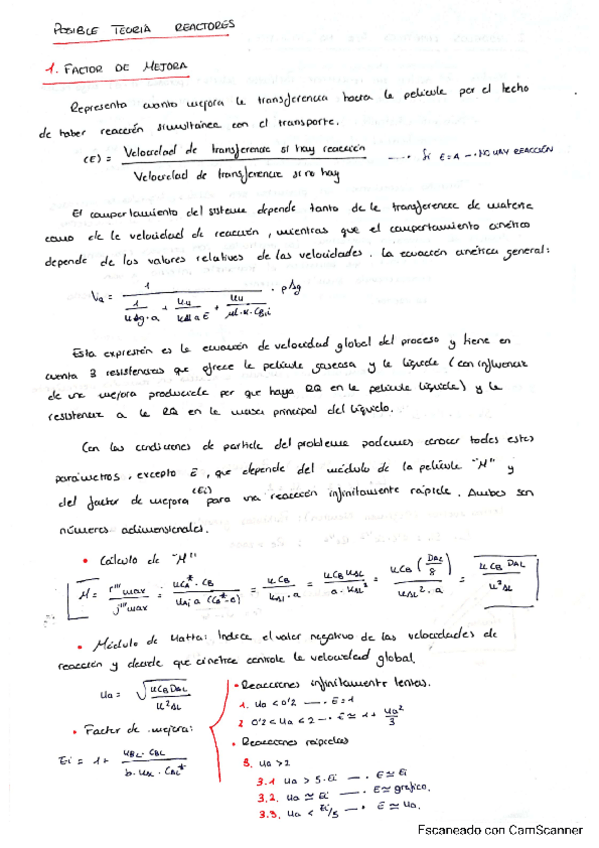 POSIBLE TEORIA REACTORES
1. FACTOR DE MEJORA
Representa cuanto mejora la transferencia hacia la película por el hecho
de haber reacción simultánea con el transporte.
(E) = Velocidad de transferencia si hay reacción / Velocidad de transferencia si no hay → Si E=1 → NO HAY REACCIÓN
El comportamiento del sistema depende tanto de la transferencia de materia
como de la velocidad de reacción, mientras que el comportamiento cinético
depende de los valores relativos de las velocidades. La ecuación cinética general:
Esta expresión es la ecuación de velocidad global del proceso y tiene en
cuenta 3 resistencias que ofrece la película gaseosa y la líquida (con influencia
de una mejora producida por que haya RQ en la película líquida) y la
resistencia a la RQ en la masa principal del líquido.
Con las condiciones de partida del problema podemos conocer todos estos
parámetros, excepto E, que depende del módulo de la película "M" y
del factor de mejora (Ei) para una reacción infinitamente rápida. Ambos son
números adimensionales.
• Cálculo de "M"
• Módulo de Hatta: Indica el valor negativo de las velocidades de
reacción y decide que cinética controla la velocidad global.
• Reacciones infinitamente lentas.
1. Ha < 0'2 → E = 1
2 0'2 < Ha < 2 → E ≃ 1 + Ha²/3
• Factor de mejora:
• Reacciones rápidas
3. Ha > 2
3.1 Ha > 5·Ei → E ≃ Ei
3.2. Ha ≃ Ei → E ≃ gráfico.
3.3. Ha < Ei/5 → E ≃ Ha.
Escaneado con CamScanner